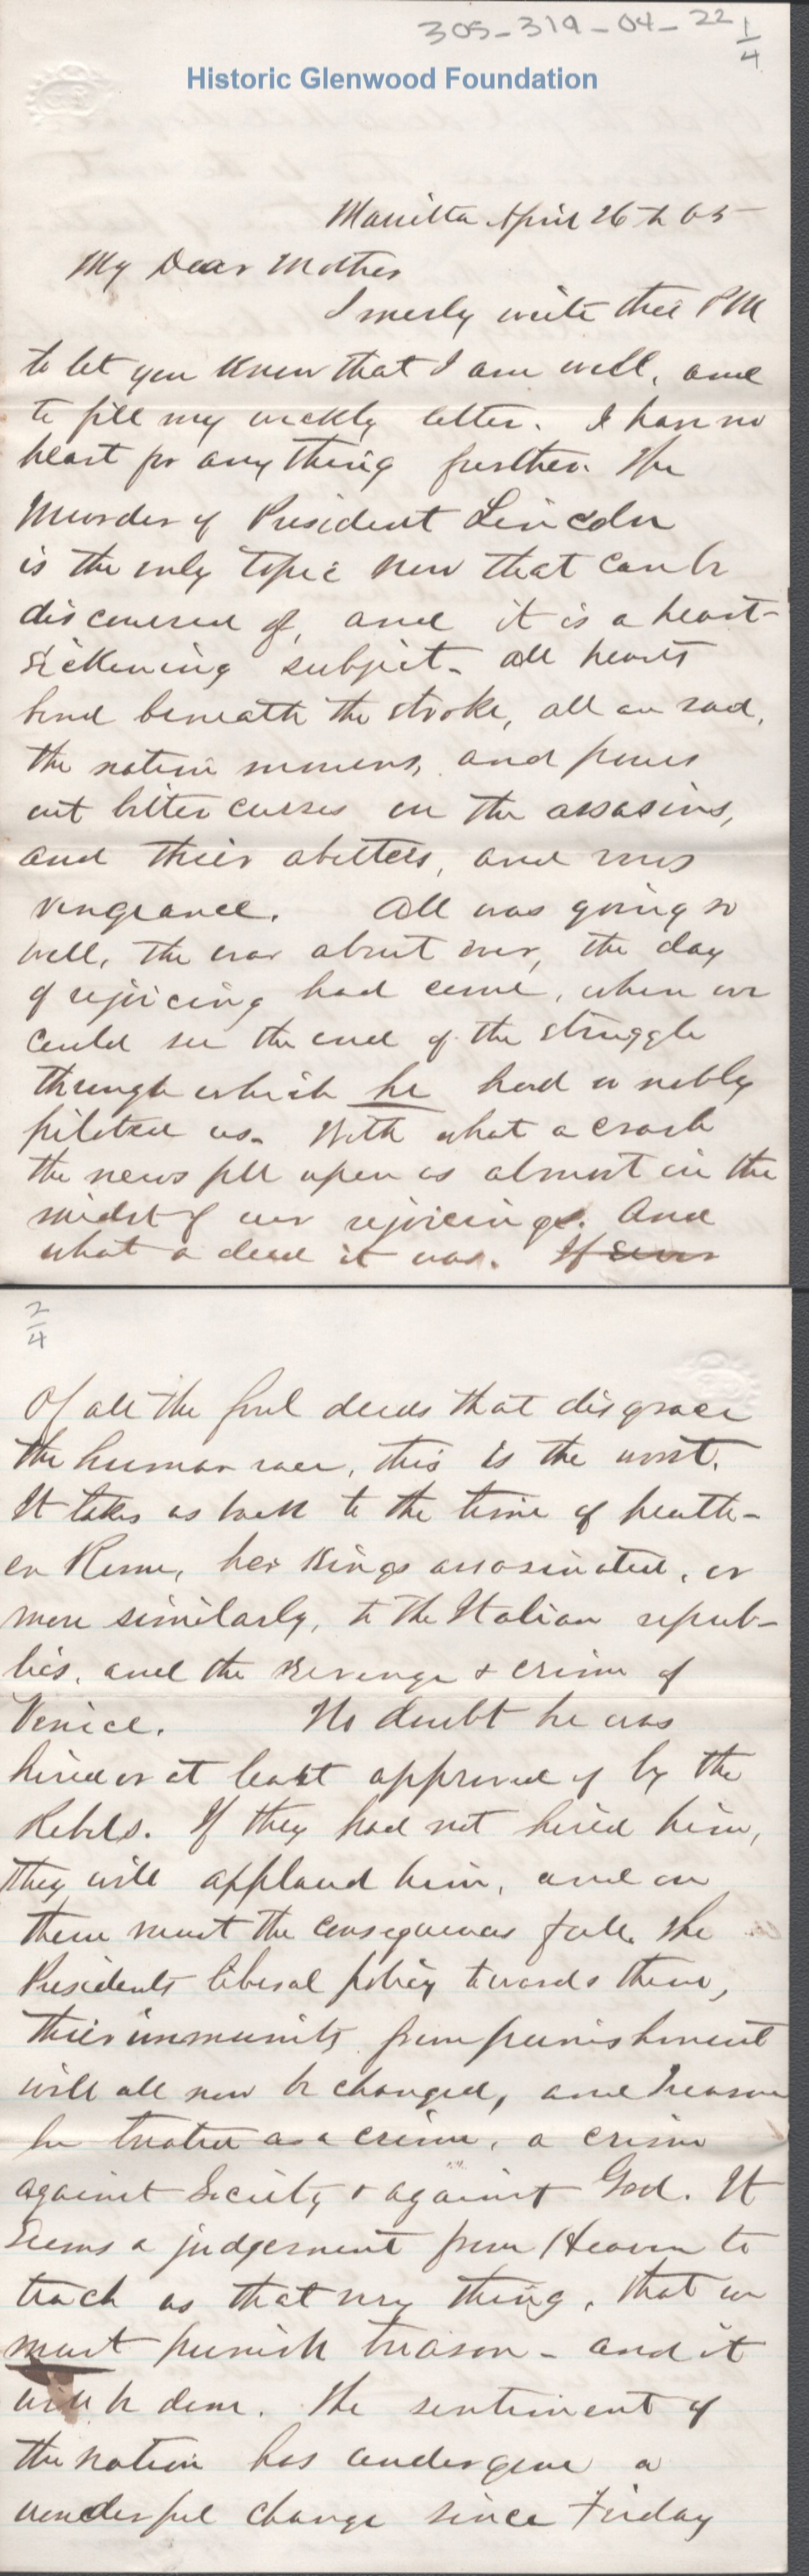 305-319-04-22 1/4
Historic Glenwood Foundation
Marietta April 26th 65
My Dear Mother
I merly write this PM
to let you know that I am well, and
to fill my weekly letter. I have no
heart for any thing further. The
Murder of President Lincoln
is the only topic now that can be
discoursed of, and it is a heart-
sickening subject. All hearts
bend beneath the stroke, all are sad,
the nation mourns, and pours
out bitter curses on the assasins,
and thier abetters, and vows
vengeance. All was going so
well, the war about over, the day
of rejoicing had come, when we
could see the end of the struggle
through which he had so nobly
piloted us. With what a crash
the news fell upon us almost in the
midst of our rejoicings. And
what a deed it was. If ever
2/4
Of all the foul deeds that disgrace
the human race, this is the worst.
It takes us back to the time of heath-
en Rome, her Kings assasinated, or
more similarly, to the Italian repub-
lics, and the revenge & crime of
Venice. No doubt he was
hired or at least approved of by the
Rebels. If they had not hired him,
They will applaud him, and on
them must the consequences fall. The
Presidents liberal policy towards them,
thier immunity from punishment
will all now be changed, and treason
be treated as a crime, a crime
against Society & against God. It
seems a judgement from Heaven to
teach us that very thing, that we
must punish treason - and it
will be done. The sentiment of
the nation has undergone a
wonderful change since Friday